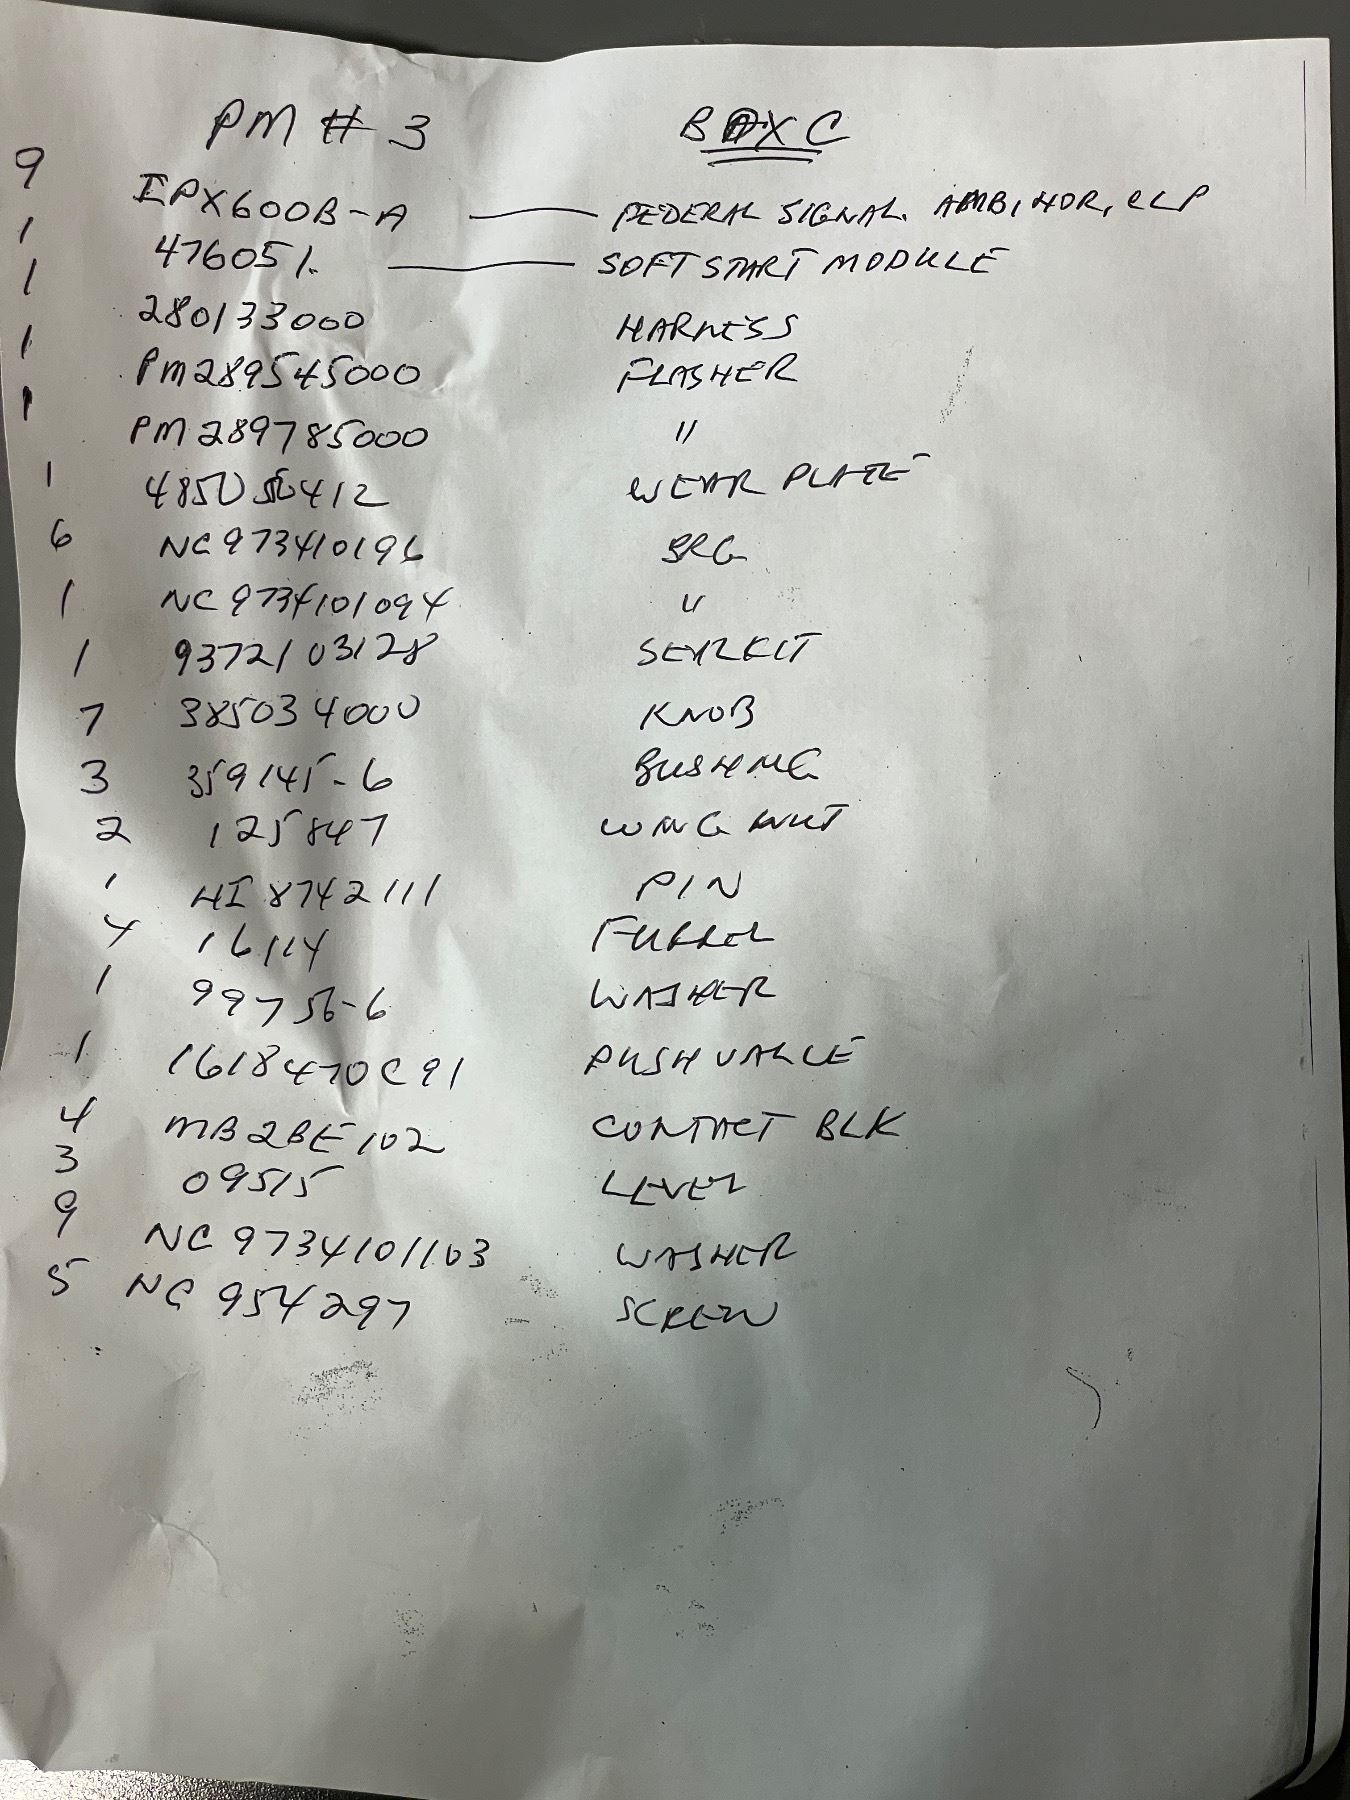 PM # 3 BOX C
9 IPX600B-A — FEDERAL SIGNAL. AMB, HOR, CLP
1 476051. — SOFT START MODULE
1 280133000 HARNESS
1 PM289545000 FLASHER
1 PM289785000 "
1 WEAR PLATE
6 NC973410196 BRG
1 NC9734101094 "
1 9372103128 SEALKIT
7 385034000 KNOB
3 359145-6 BUSHING
2 125847 WING NUT
1 HI8742111 PIN
4 16114
1 99756-6 WASHER
1 1618470C91 PUSH VALVE
4 MB2BE102 CONTACT BLK
3 09515 LEVEL
9 NC9734101103 WASHER
5 NC954297 SCREW